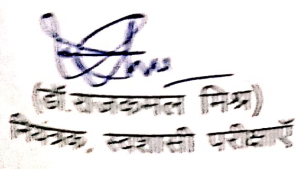 (डॉ. राजकमल मिश्र)
नियंत्रक, स्वशासी परीक्षाएँ